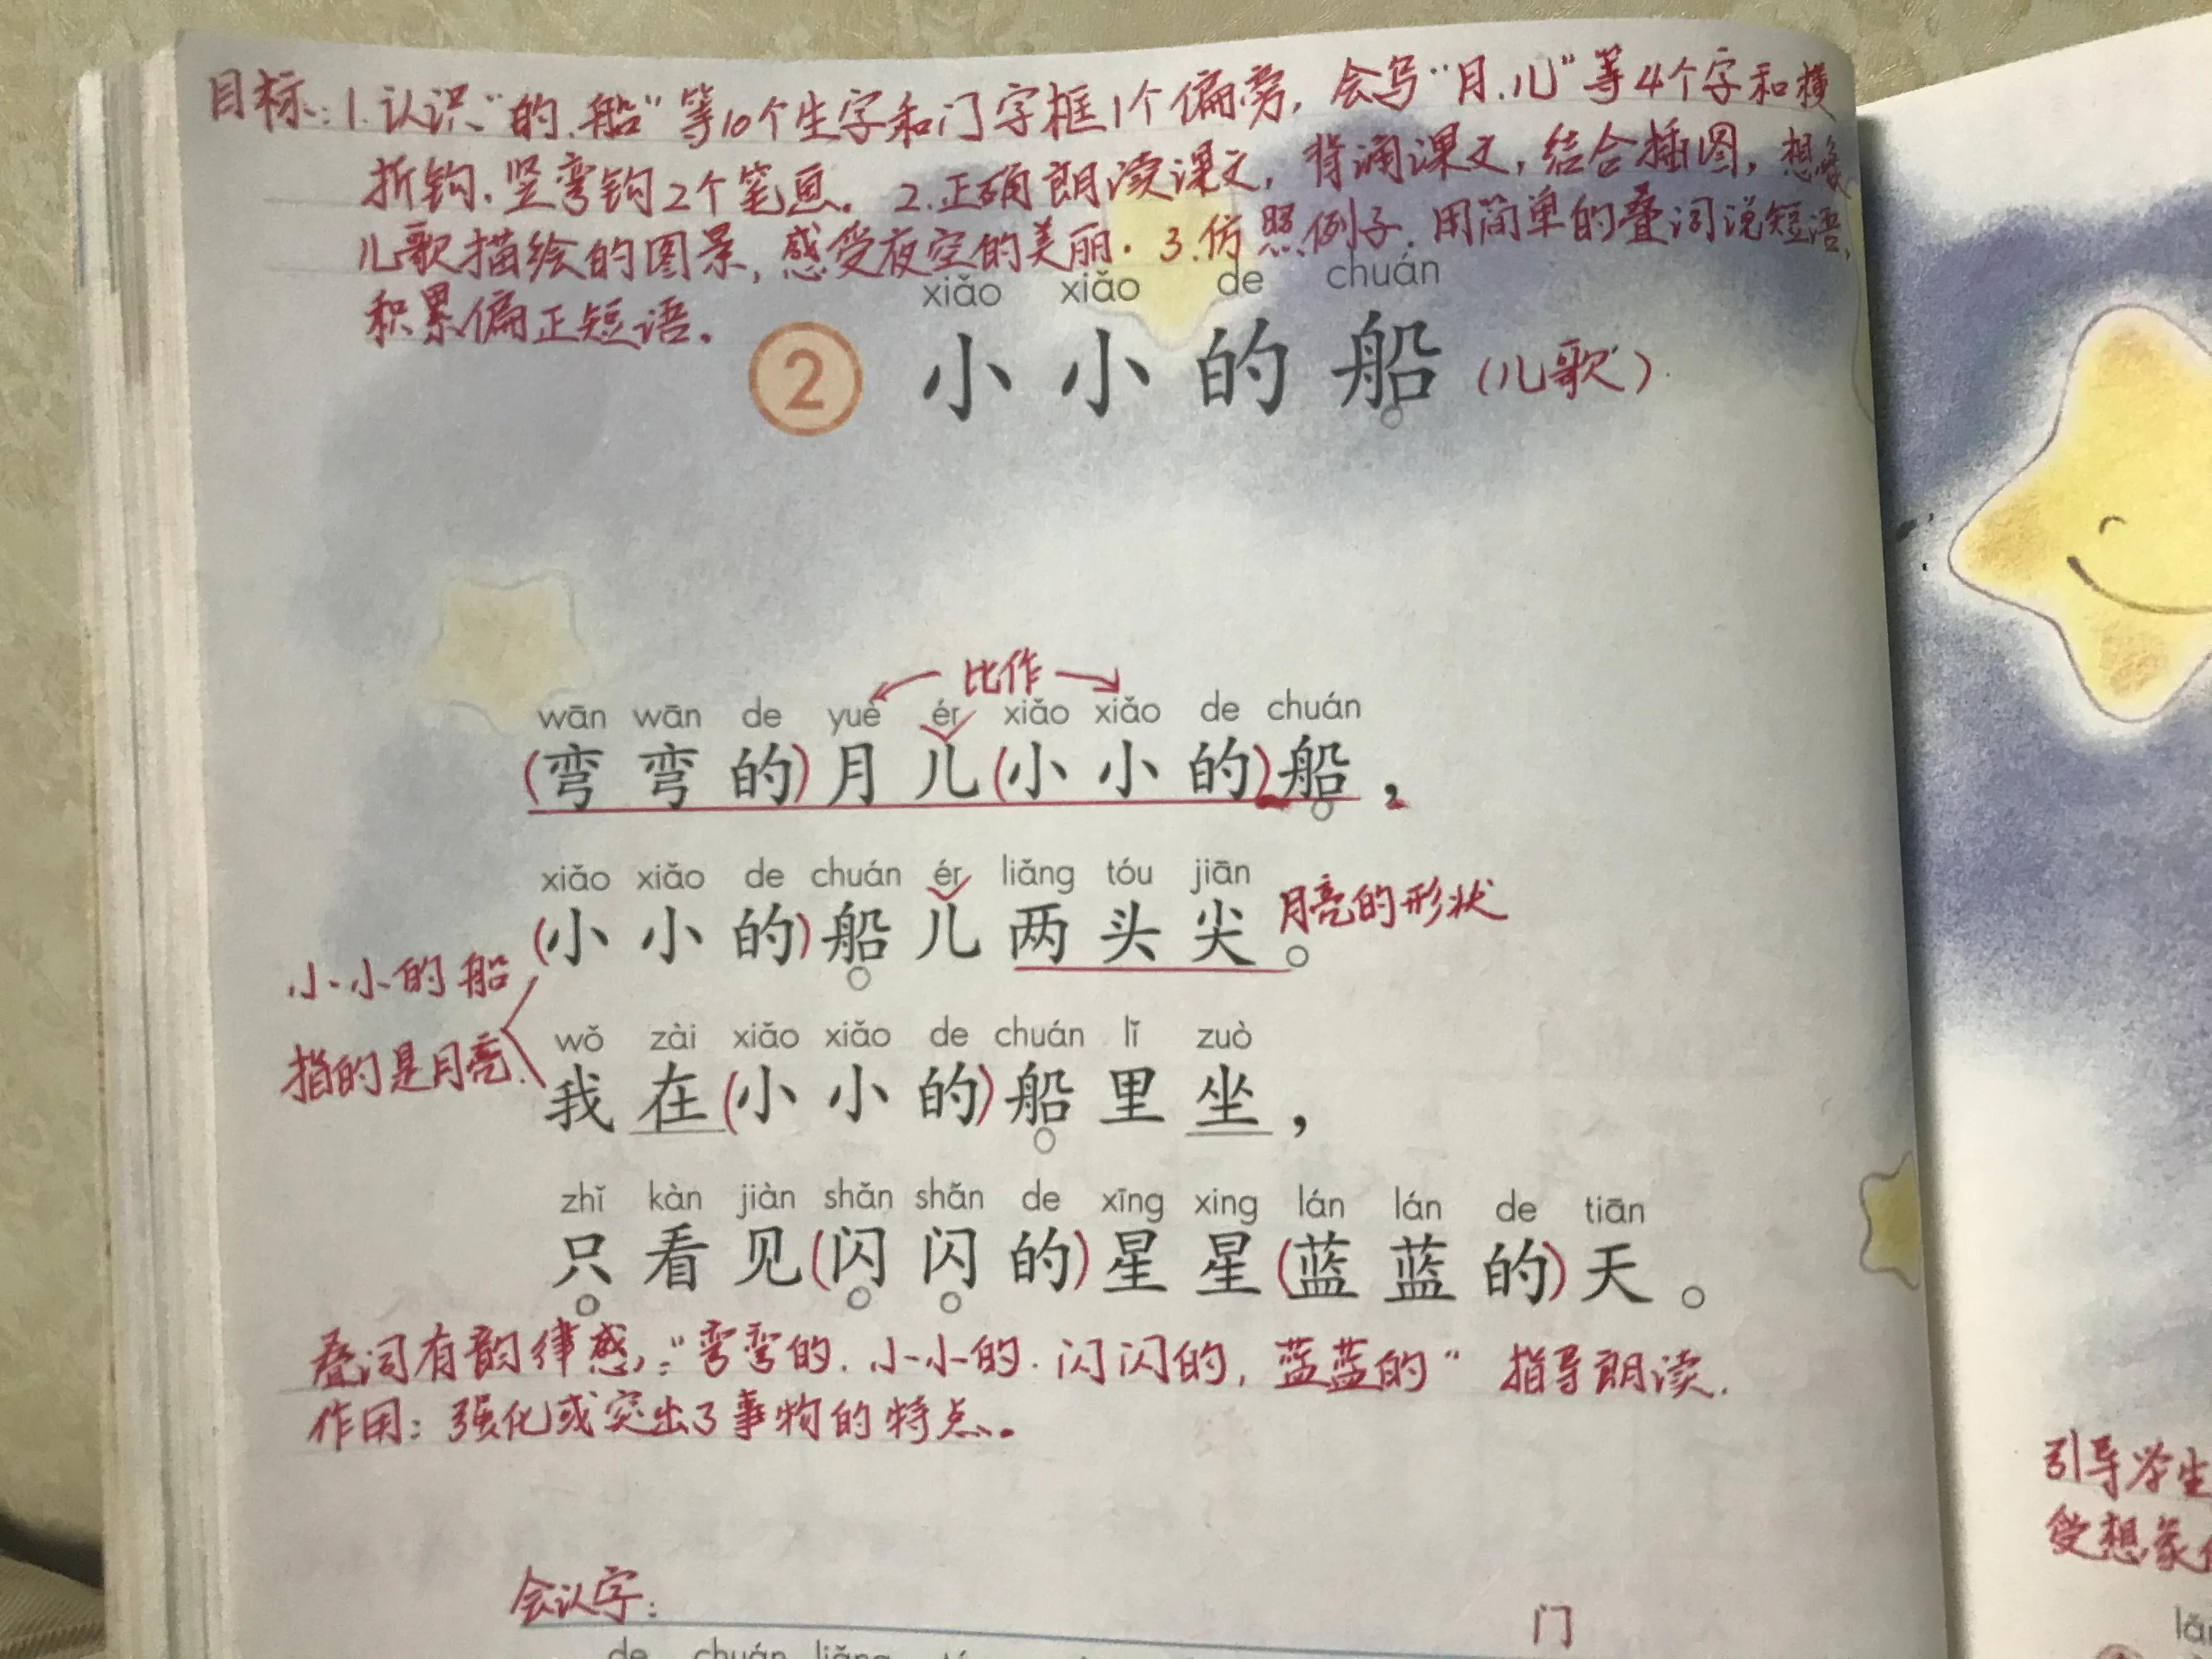 目标:1.认识"的、船"等10个生字和门字框1个偏旁,会写"月、儿"等4个字和横
折钩、竖弯钩2个笔画。2.正确朗读课文,背诵课文,结合插图,想象
儿歌描绘的图景,感受夜空的美丽.3.仿照例子.用简单的叠词说短语,
积累偏正短语。
xiǎo xiǎo de chuán
2 小小的船(儿歌)
比作
wān wān de yuè ér xiǎo xiǎo de chuán
(弯弯的)月儿(小小的)船,
xiǎo xiǎo de chuán ér liǎng tóu jiān
(小小的)船儿两头尖。月亮的形状
小小的船
指的是月亮.
wǒ zài xiǎo xiǎo de chuán lǐ zuò
我在(小小的)船里坐,
zhǐ kàn jiàn shǎn shǎn de xīng xing lán lán de tiān
只看见(闪闪的)星星(蓝蓝的)天。
叠词有韵律感,:"弯弯的.小小的.闪闪的,蓝蓝的"指导朗读.
作用:强化或突出了事物的特点。
会认字:
门
de chuán liǎng
引导学生
受想象